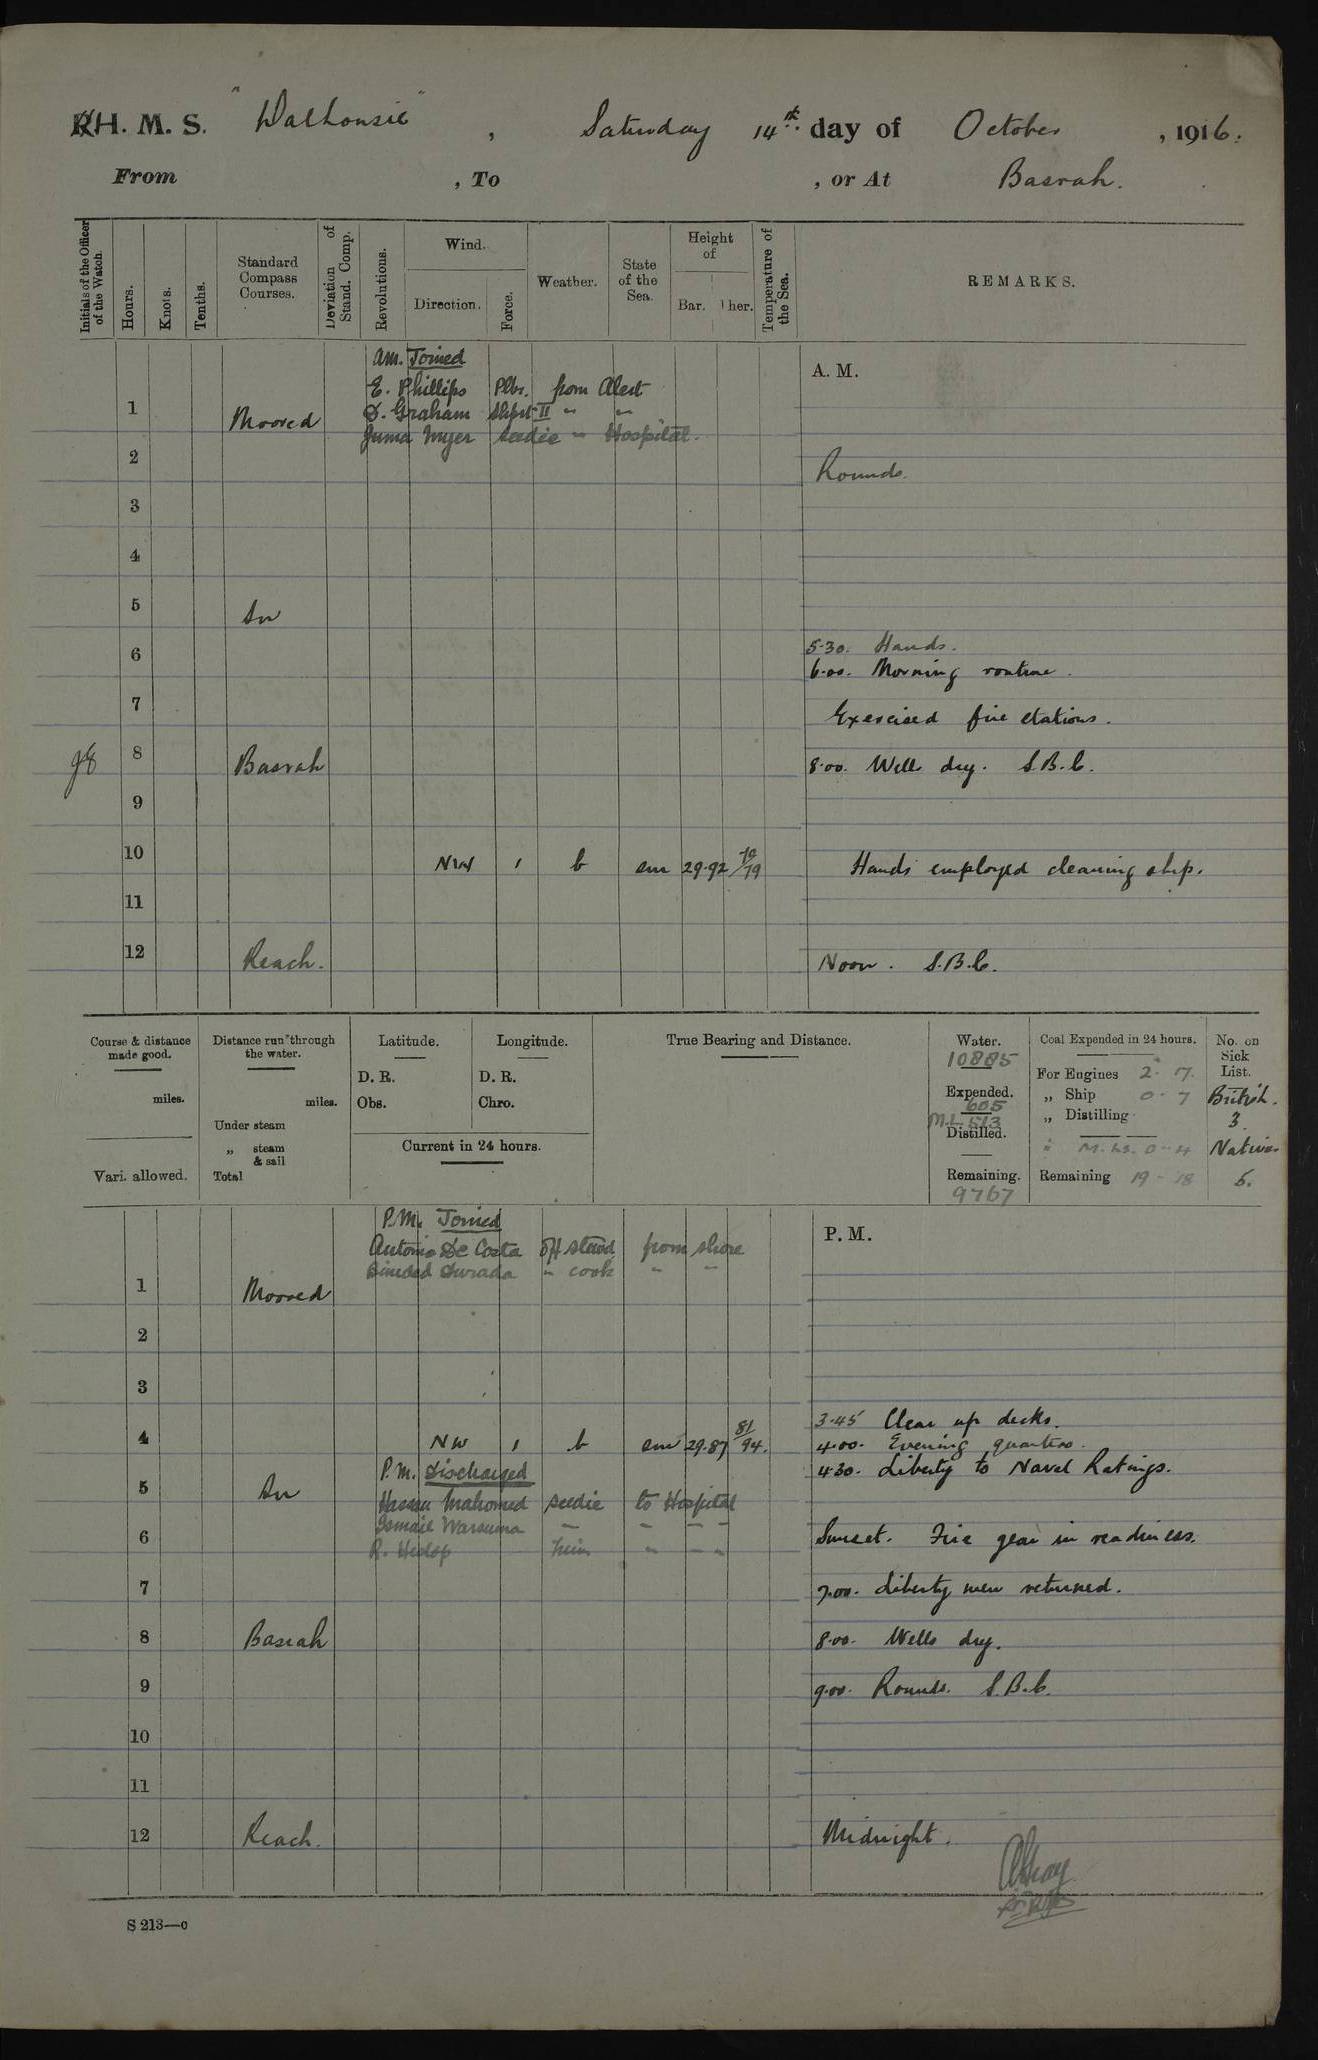 H. M. S. "Dalhousie", Saturday 14th. day of October, 1916.
From , To , or At Basrah.
Initials of the Officer of the Watch.
Hours.
Knots.
Tenths.
Standard Compass Courses.
Deviation of Stand. Comp.
Revolutions.
Wind.
Direction.
Force.
Weather.
State of the Sea.
Height of
Bar. Ther.
Temperature of the Sea.
REMARKS.
A.M. Joined
E. Phillips Plbr. from Alert
D. Graham Shpt II " "
Juma Myer Seedie " Hospital.
A. M.
1 Moored
2 Rounds.
3
4
5 In
5.30. Hands.
6
6.00. Morning routine.
7 Exercised fire stations.
8 Basrah 8.00. Wells dry. S.B.C.
9
10 NW 1 b sm 29.92 /79 Hands employed cleaning ship.
11
12 Reach. Noon. S.B.C.
Course & distance made good.
miles.
Vari. allowed.
Distance run through the water.
miles.
Under steam
„ steam & sail
Total
Latitude.
D. R.
Obs.
Longitude.
D. R.
Chro.
Current in 24 hours.
True Bearing and Distance.
Water.
10885
Expended.
605
M.L 513
Distilled.
Remaining.
9767
Coal Expended in 24 hours.
For Engines 2 - 17.
„ Ship 0 - 7
„ Distilling
„ M. Ls. 0 - 4
Remaining 19 - 18
No. on Sick List.
British.
3
Natives
6.
P.M. Joined
Antonio De Costa Off steward from shore
" cook " "
P. M.
1 Moored
2
3
3.45 Clear up decks.
4 NW 1 b sm 29.87 81/94. 4.00. Evening quarters.
4.30. Liberty to Naval Ratings.
P.M. Discharged
5 In
Hassan Mahomed seedie to Hospital
Ismail Warsuma " " " "
6 Sunset. Fire gear in readiness.
R. " " "
7 7.00. Liberty men returned.
8 Basrah 8.00. Wells dry.
9 9.00. Rounds. S.B.C.
10
11
12 Reach. Midnight.
S 213—c